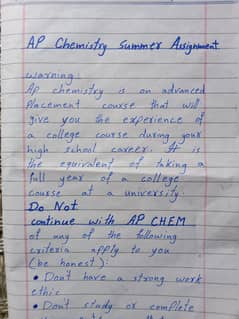 AP Chemistry Summer Assignment
Warning:
Ap chemistry is an advanced
Placement course that will
give you the experience of
a college course during your
high school career. It is
the equivalent of taking a
full year of a college
course at a university.
Do Not
continue with AP CHEM
if any of the following
criteria apply to you
(be honest):
• Don't have a strong work
ethic
• Don't study or complete